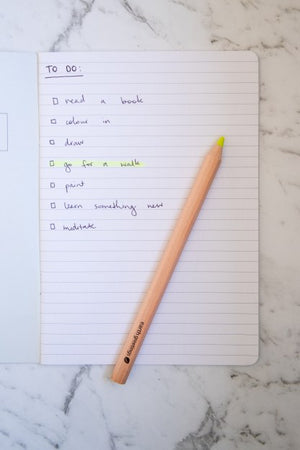 TO DO:
read a book
colour in
draw
go for a walk
paint
learn something new
meditate
earthgreetings